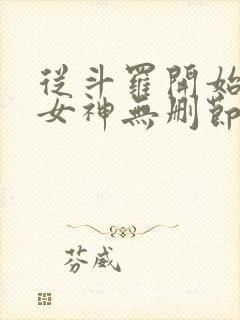 從斗羅開始
女神無刪節
芬威